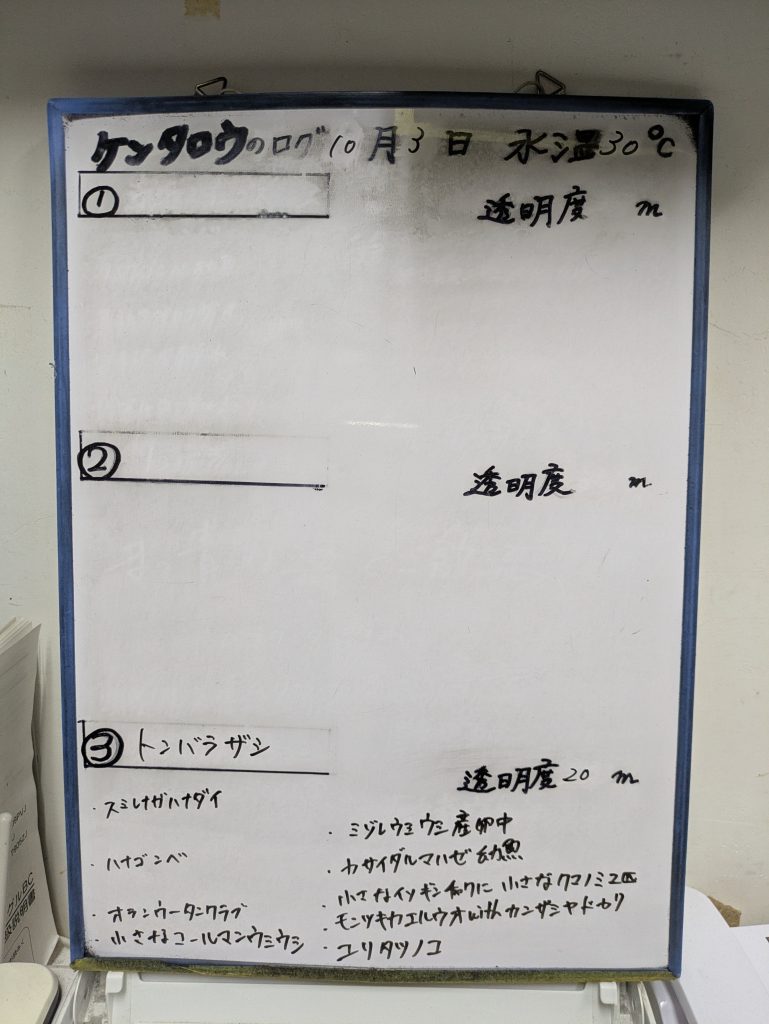 ケンタロウのログ 10月3日 水温30℃
① 透明度 m
② 透明度 m
③ トンバラザシ 透明度20m
・スミレナガハナダイ
・ハナゴンベ
・オランウータンクラブ
・小さなコールマンウミウシ
・ミゾレウミウシ産卵中
・カサイダルマハゼ幼魚
・小さなイソギンチャクに小さなクマノミ2匹
・モンツキカエルウオwithカンザシヤドカリ
・ユリタツノコ
取扱説明書